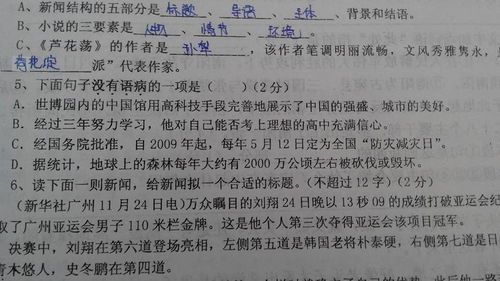 A、新闻结构的五部分是 标题 、 导语 、 主体 、背景和结语。
B、小说的三要素是 人物 、 情节 、 环境 。
C、《芦花荡》的作者是 孙犁 ，该作者笔调明丽流畅，文风秀雅隽永，
荷花淀 派”代表作家。
5、下面句子没有语病的一项是（ ）（2 分）
A．世博园内的中国馆用高科技手段完善地展示了中国的强盛、城市的美好。
B．经过三年努力学习，他对自己能否考上理想的高中充满信心。
C．经国务院批准，自 2009 年起，每年 5 月 12 日定为全国“防灾减灾日”。
D．据统计，地球上的森林每年大约有 2000 万公顷左右被砍伐或毁坏。
6、读下面一则新闻，给新闻拟一个合适的标题。（不超过 12 字）（2 分）
（新华社广州 11 月 24 日电）万众瞩目的刘翔 24 日晚以 13 秒 09 的成绩打破亚运会纪
取了广州亚运会男子 110 米栏金牌。这是他个人第三次夺得亚运会该项目冠军。
决赛中，刘翔在第六道登场亮相，左侧第五道是韩国老将朴泰硬，右侧第七道是日
青木悠人，史冬鹏在第四道。